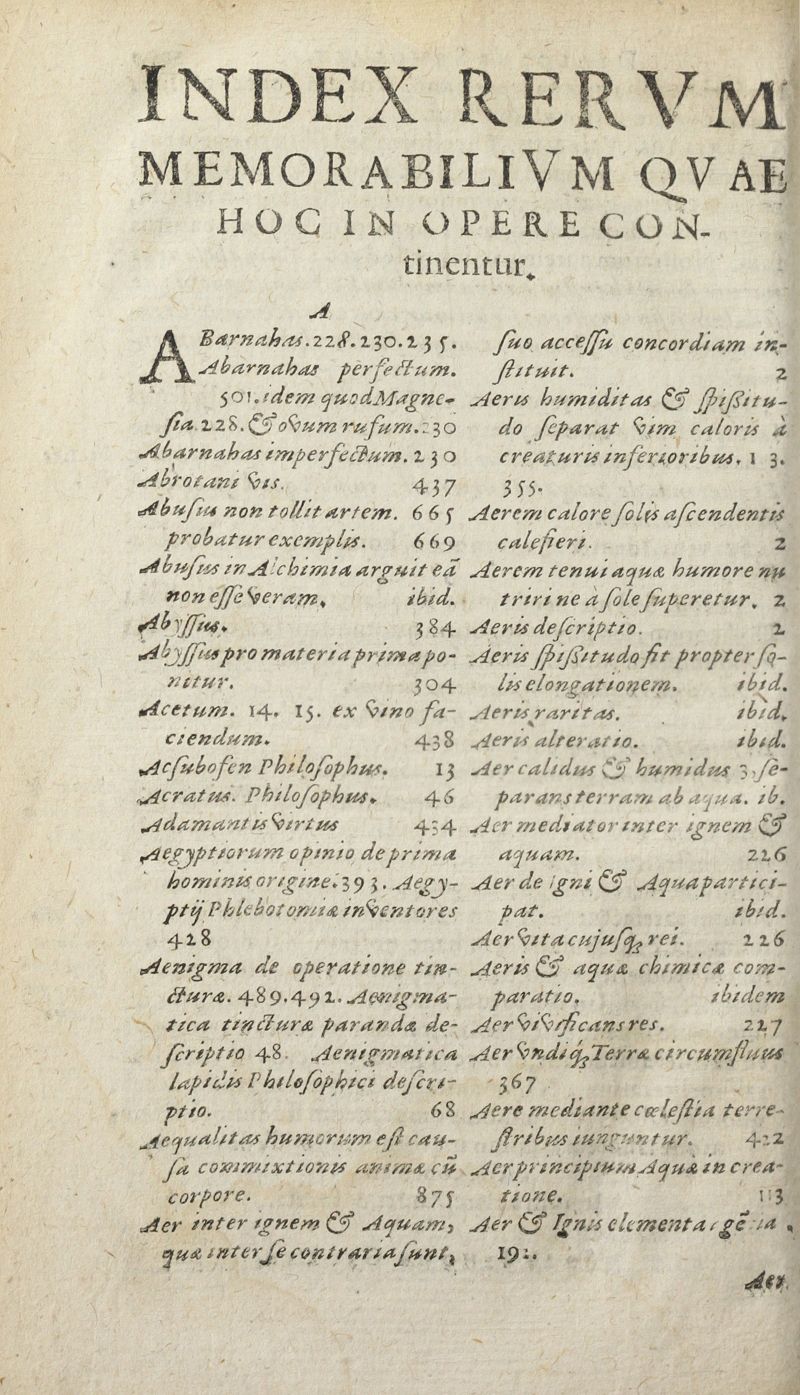 INDEX RERVM
MEMORABILIVM QVAE
HOC IN OPERE CON-
tinentur.
A
ABarnahas. 228. 230. 235.
Abarnahas perfectum.
501. idem quod Magne-
sia 228. & ovum rufum. 230
Abarnahas imperfectum. 230
Abrotani vis. 437
Abusus non tollit artem. 665
probatur exemplis. 669
Abusus in Alchimia arguit eã
non esse veram, ibid.
Abyssus. 384
Abyssus pro materia prima po-
nitur. 304
Acetum. 14. 15. ex vino fa-
ciendum. 438
Acsubofen Philosophus. 13
Acratus. Philosophus. 46
Adamantis virtus 434
Aegyptiorum opinio de prima
hominis origine. 393. Aegy-
ptij Phlebotomiæ inventores
428
Aenigma de operatione tin-
cturæ. 489. 492. Aenigma-
tica tincturæ parandæ de-
scriptio 48. Aenigmatica
lapidis Philosophici descri-
ptio. 68
Aequalitas humorum est cau-
sa commixtionis animæ cũ
corpore. 875
Aer inter ignem & Aquam,
quæ inter se contraria sunt,
suo accessu concordiam in-
stituit. 2
Aeris humiditas & spissitu-
do separat vim caloris à
creaturis inferioribus. 1 3.
355.
Aerem calore solis ascendentis
calefieri. 2
Aerem tenui aquæ humore nu
triri ne à sole superetur. 2
Aeris descriptio. 2
Aeris spissitudo fit propter so-
lis elongationem. ibid.
Aeris raritas. ibid.
Aeris alteratio. ibid.
Aer calidus & humidus 3. se-
parans terram ab aqua. ib.
Aer mediator inter ignem &
aquam. 226
Aer de igni & Aqua partici-
pat. ibid.
Aer vita cujusq; rei. 226
Aeris & aquæ chimicæ com-
paratio. ibidem
Aer vivificans res. 227
Aer undiq; Terræ circumfluus
367
Aere mediante cœlestia terre-
stribus iunguntur. 422
Aer principium Aquæ in crea-
tione. 113
Aer & Ignis elementa
Aer